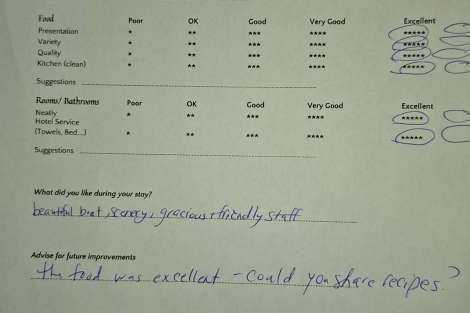 Food Poor OK Good Very Good Excellent
Presentation * ** *** **** *****
Variety * ** *** **** *****
Quality * ** *** **** *****
Kitchen (clean) * ** *** **** *****
Suggestions
Rooms/ Bathrooms Poor OK Good Very Good Excellent
Neatly * ** *** **** *****
Hotel Service
(Towels, Bed....) * ** *** **** *****
Suggestions
What did you like during your stay?
beautiful boat, scenery, gracious + friendly staff
Advise for future improvements
the food was excellent - could you share recipes?